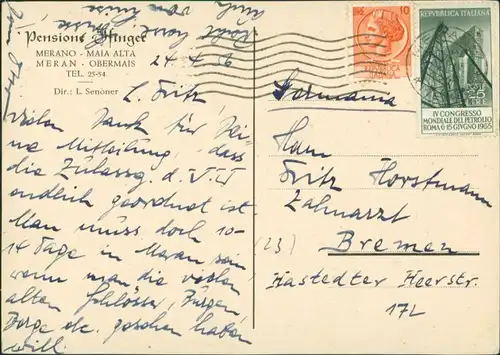 Pensione Ifinger
MERANO - MAIA ALTA
MERAN - OBERMAIS
TEL. 25-54
Dir.: L. Senoner
24. 4. 56
L. Fritz
Vielen Dank für Dei-
ne Mitteilung, dass
die Zulassg. d. VW
endlich geordnet ist
Man muss doch 10-
14 Tage in Meran sein
wenn man die vielen
alten Schlösser, Burgen,
Berge etc. gesehen haben
will.
10
REPVBBLICA ITALIANA
25
LIRE
IV CONGRESSO
MONDIALE DEL PETROLIO
ROMA 6-15 GIVGNO 1955
Germania
Herrn
Fritz Horstmann
Zahnarzt
(23) Bremen
Hastedter Heerstr.
172